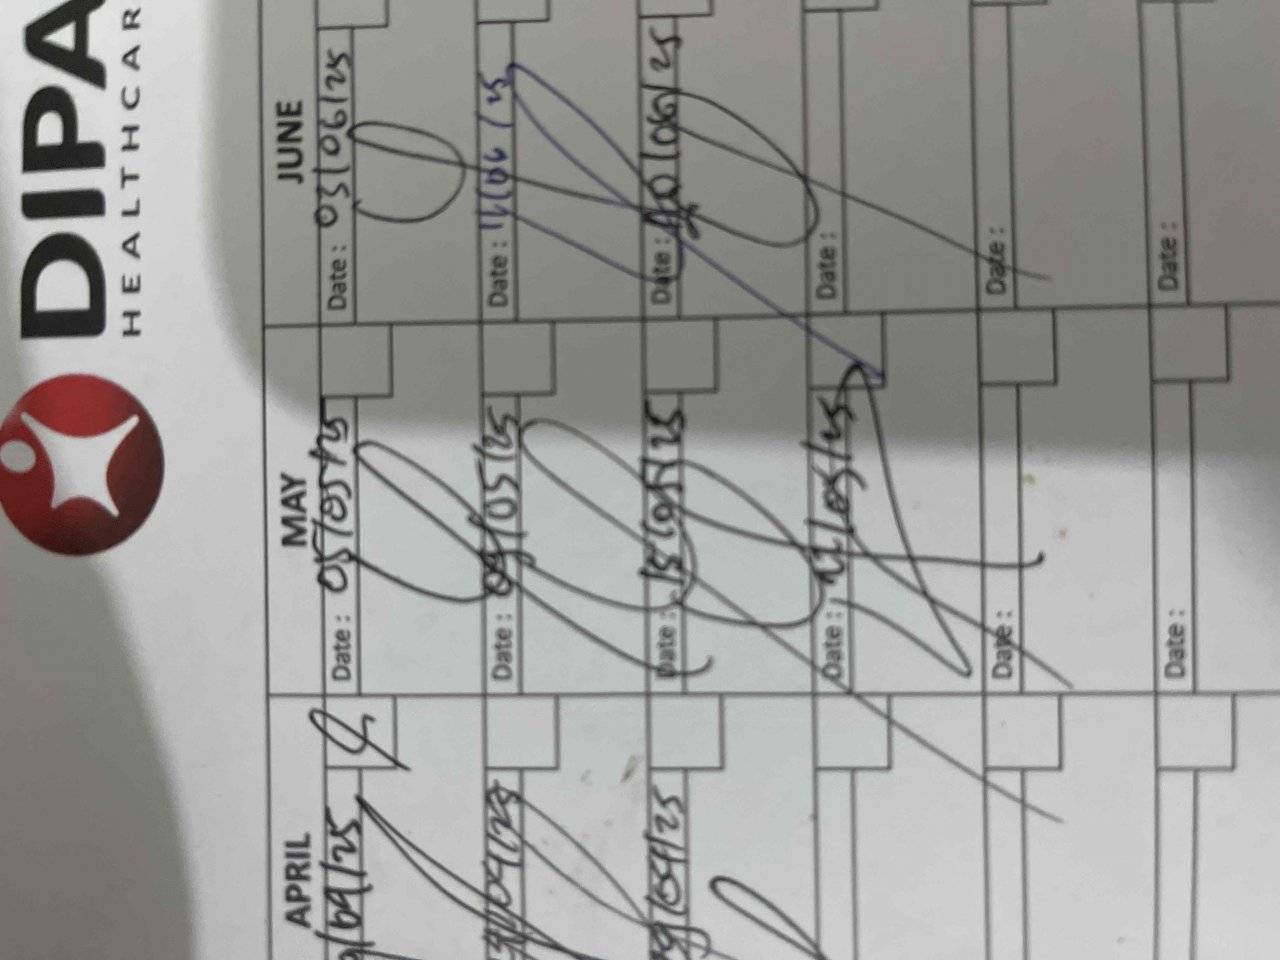 DIPA
HEALTHCAR
APRIL
/04/25
/04/25
/04/25
MAY
Date : 05/05/25
Date : 09/05/25
Date : 15/05/25
Date : 22/05/25
Date :
Date :
JUNE
Date : 03/06/25
Date : 11/06/25
Date : /06/25
Date :
Date :
Date :